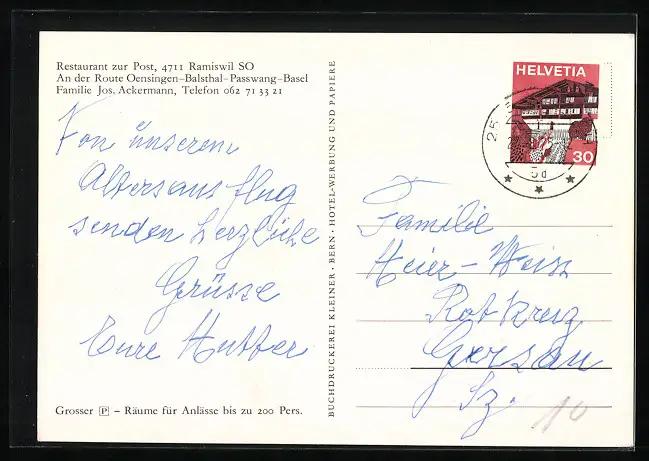 Restaurant zur Post, 4711 Ramiswil SO
An der Route Oensingen–Balsthal–Passwang–Basel
Familie Jos. Ackermann, Telefon 062 71 33 21
Von unserem
Altersausflug
senden herzliche
Grüsse
Eure Mutter
Grosser P – Räume für Anlässe bis zu 200 Pers.
BUCHDRUCKEREI KLEINER · BERN · HOTEL-WERBUNG UND PAPIERE
HELVETIA
30
25
Familie
Heier-Weiss
Rotkreuz
Gersau
Sz.
10